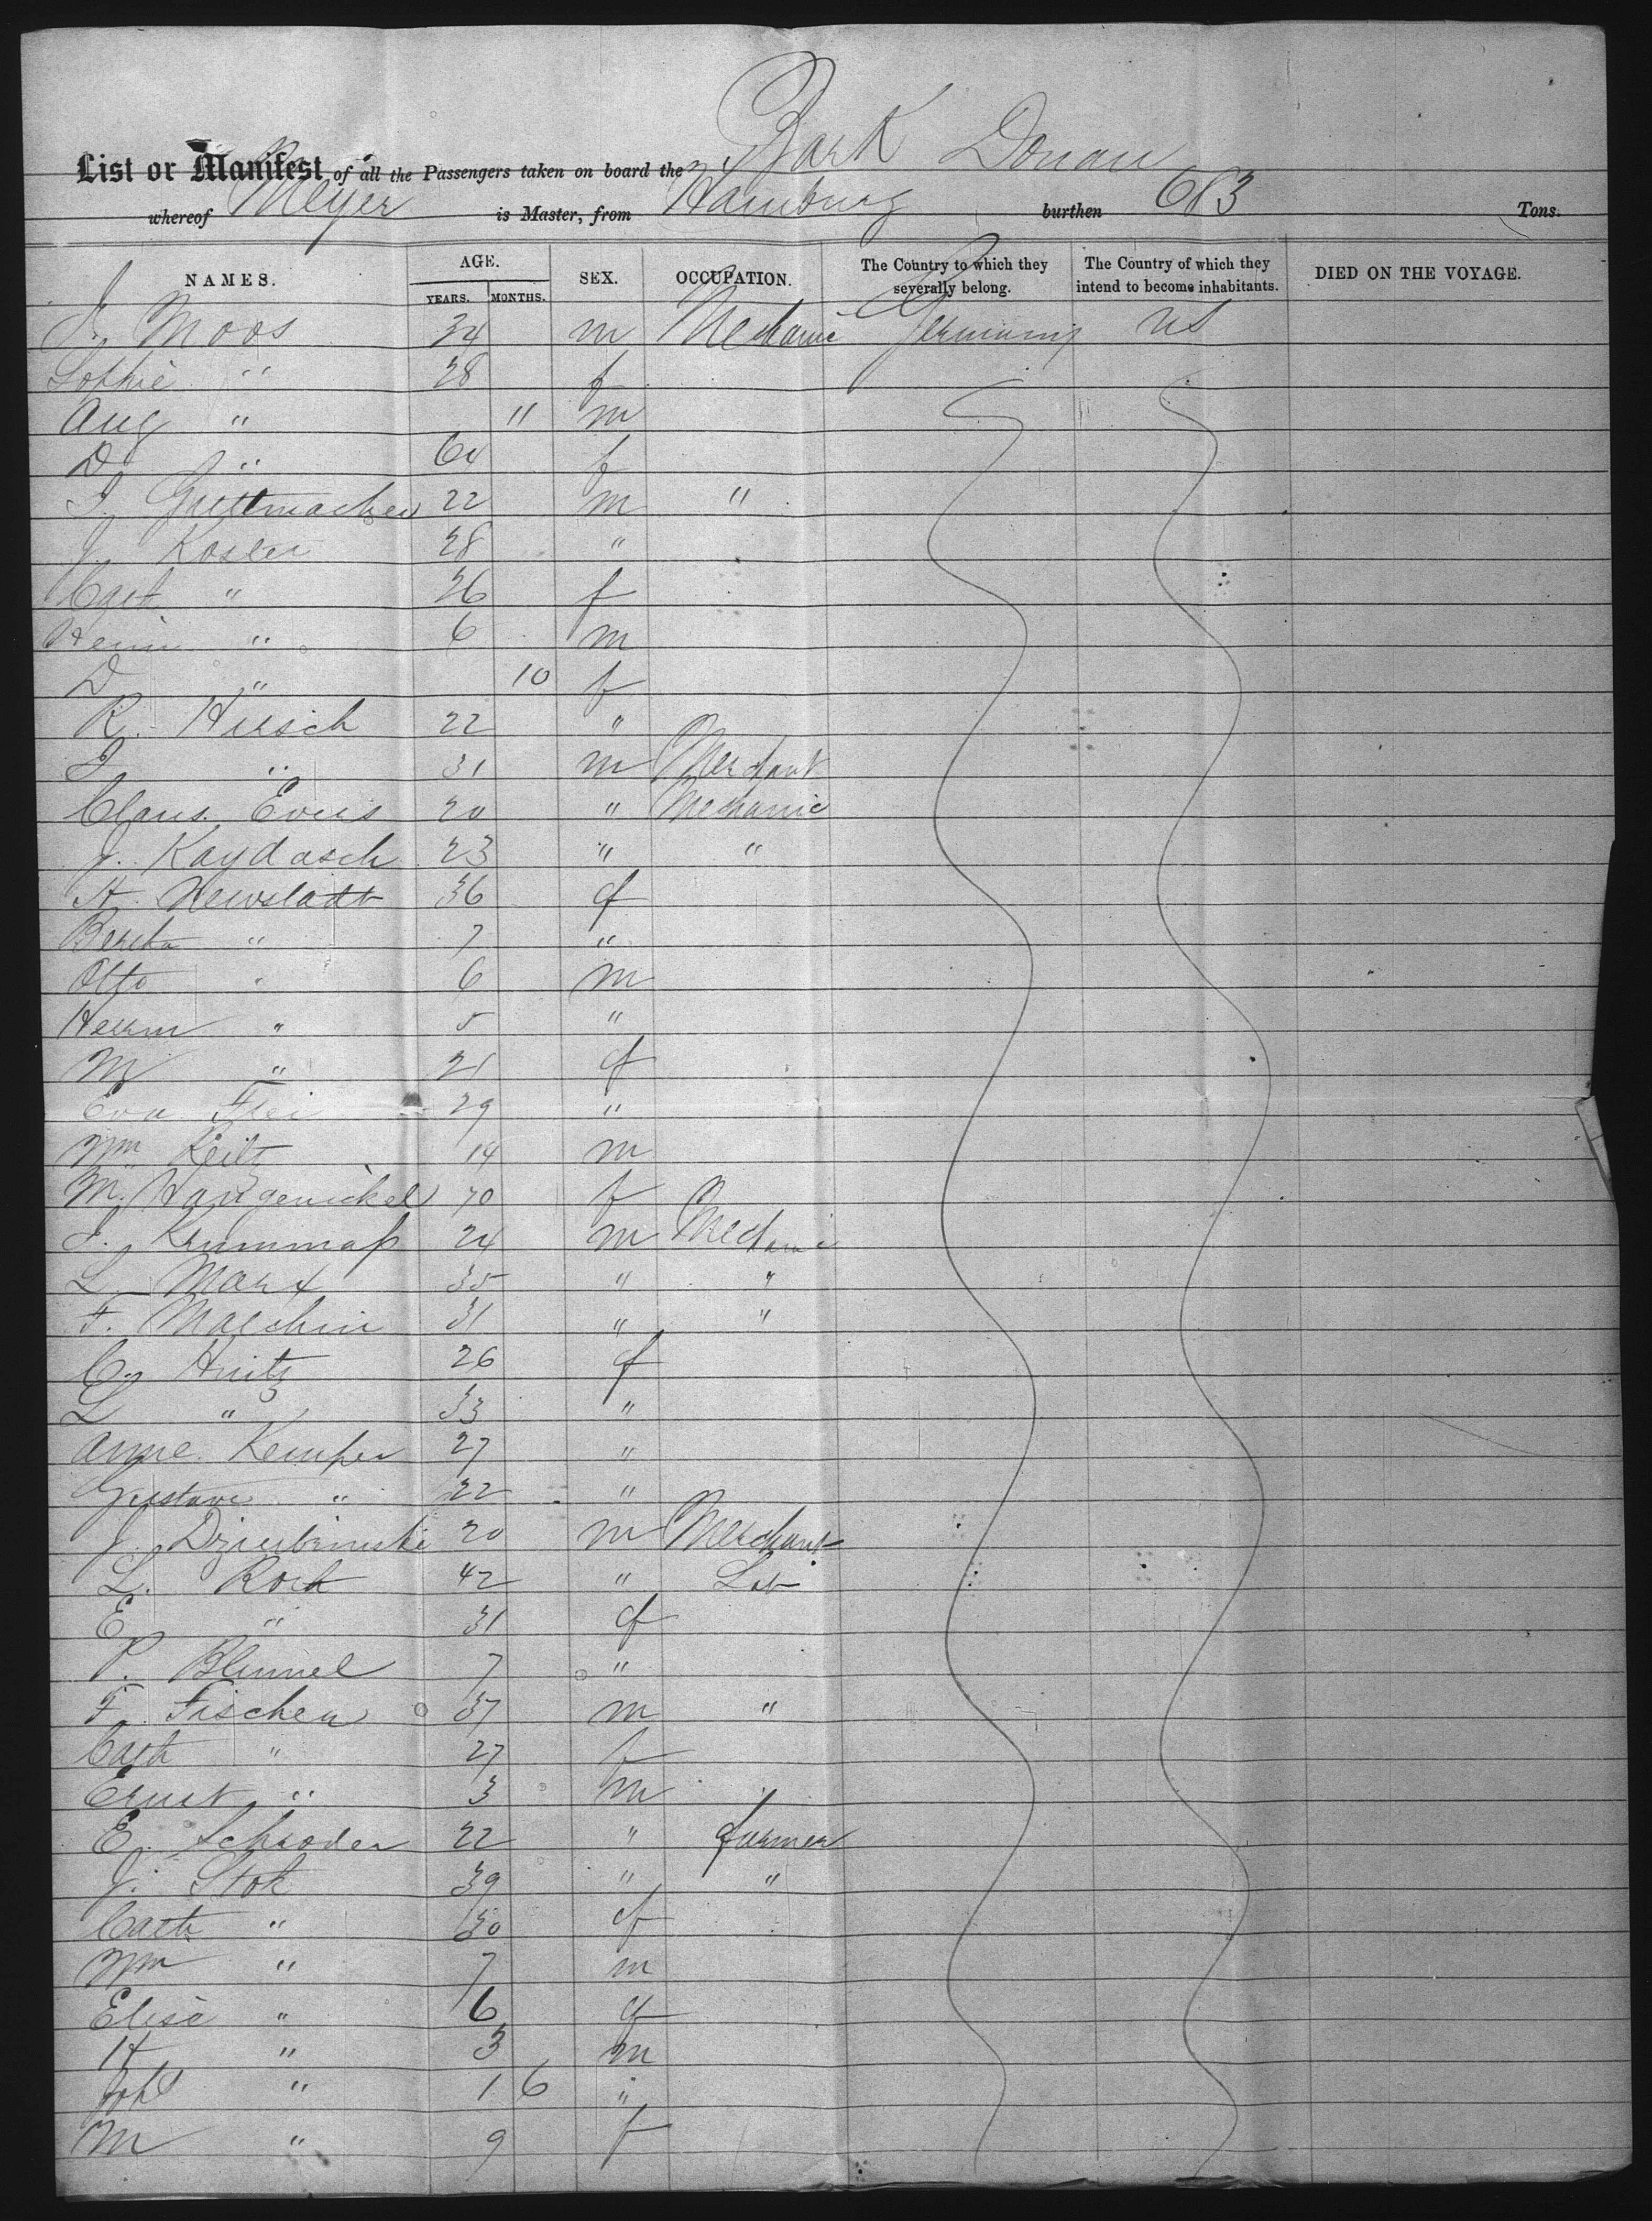 Bark Donau
List or Manifest of all the Passengers taken on board the
whereof Meyer is Master, from Hamburg burthen 683 Tons.
NAMES. AGE. YEARS. MONTHS. SEX. OCCUPATION. The Country to which they severally belong. The Country of which they intend to become inhabitants. DIED ON THE VOYAGE.
J. Moos 34 m Mechanic Germany US
Sophie " 28 f
Aug " 11 m
D " 64 f
J. Guttmacher 22 m "
J. Koster 28 "
" 26 f
" 6 m
D " 10 f
R. Hirsch 22 "
" 31 m Merchant
Claus Evers 20 " Mechanic
J. Kaydasch 23 " "
A. Newstadt 36 f
Bertha " 7 "
Otto " 6 m
Herm " 5 "
M " 21 f
Eva Frei 29 "
Wm Reitz 14 m
M. Hangenickel 70 f
J. Krummaß 24 m Mechanic
L. Marx 35 " "
F. Malchin 31 " "
C. 26 f
L " 33 "
Anne Kemper 27 "
Gustave " 22 "
J. Dziubinski 20 m Merchant
L. Rock 42 " Lab
E " 31 f
P. Blumel 7 "
F. Fischer 37 m "
Cath " 27 f
Ernst " 3 m
E. Schroder 22 " farmer
J. Stok 39 " "
Cath " 30 f
Wm " 7 m
Elise " 6 f
H " 3 m
Joh " 1 6 "
M " 9 f